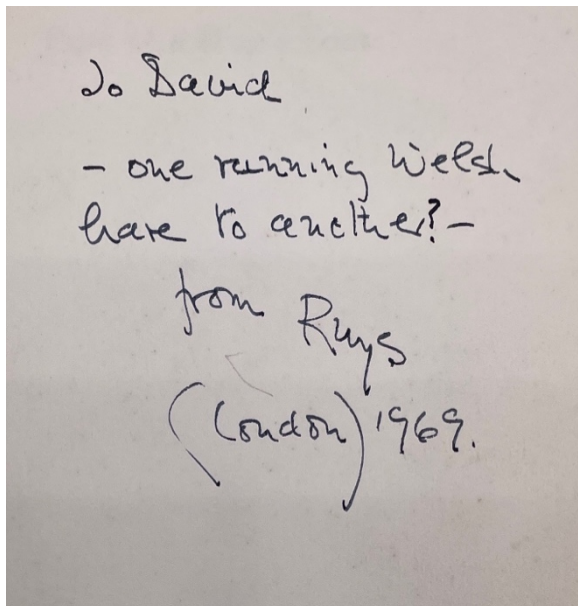 To David
- one running Welsh
hare to another? -
from Rhys
(London) 1969.